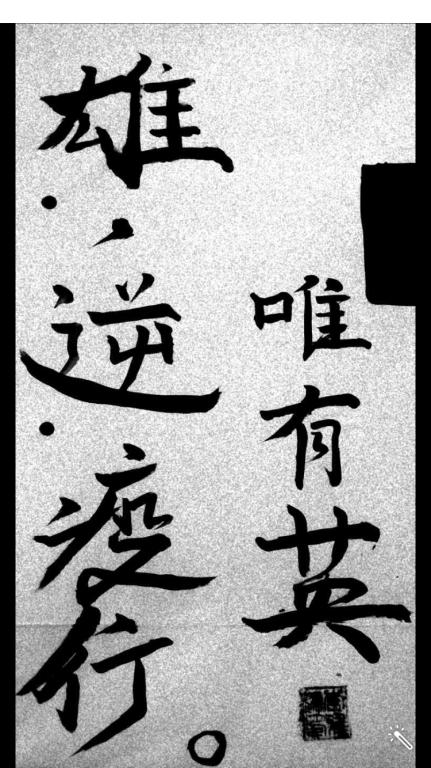 唯有英
雄，逆疫行。